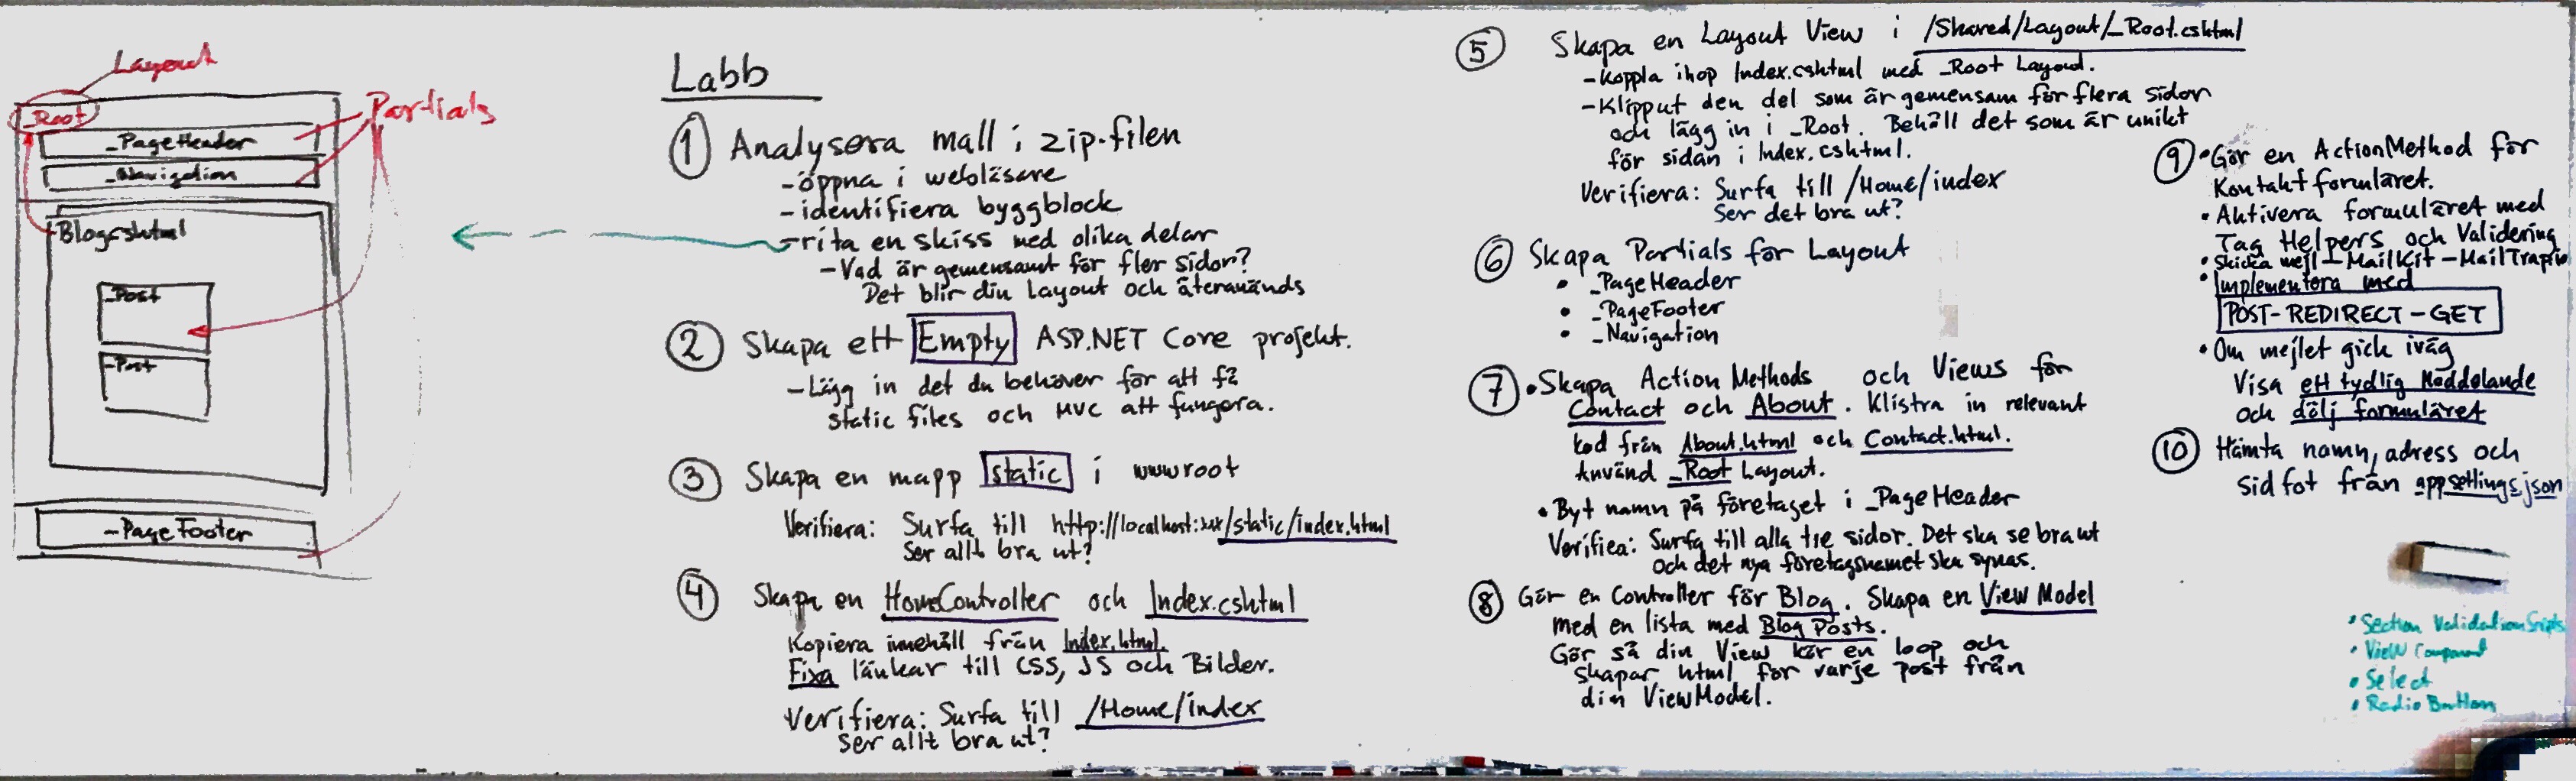 Layout
_Root
Partials
_PageHeader
_Navigation
Blog.cshtml
_Post
_Post
_PageFooter
Labb
① Analysera mall i zip-filen
- öppna i webläsare
- identifiera byggblock
- rita en skiss med olika delar
- Vad är gemensamt för fler sidor?
Det blir din Layout och återanvänds
② Skapa ett Empty ASP.NET Core projekt.
- Lägg in det du behöver för att få
static files och MVC att fungera.
③ Skapa en mapp static i wwwroot
Verifiera: Surfa till http://localhost:xxx/static/index.html
Ser allt bra ut?
④ Skapa en HomeController och Index.cshtml
Kopiera innehåll från Index.html.
Fixa länkar till CSS, JS och Bilder.
Verifiera: Surfa till /Home/index
Ser allt bra ut?
⑤ Skapa en Layout View i /Shared/Layout/_Root.cshtml
- Koppla ihop Index.cshtml med _Root Layout.
- Klipp ut den del som är gemensam för flera sidor
och lägg in i _Root. Behåll det som är unikt
för sidan i Index.cshtml.
Verifiera: Surfa till /Home/index
Ser det bra ut?
⑥ Skapa Partials för Layout
• _PageHeader
• _PageFooter
• _Navigation
⑦ • Skapa Action Methods och Views för
Contact och About. Klistra in relevant
kod från About.html och Contact.html.
Använd _Root Layout.
• Byt namn på företaget i _PageHeader
Verifiea: Surfa till alla tre sidor. Det ska se bra ut
och det nya företagsnamet ska synas.
⑧ Gör en Controller för Blog. Skapa en View Model
med en lista med Blog Posts.
Gör så din View kör en loop och
skapar html för varje post från
din ViewModel.
⑨ • Gör en ActionMethod för
Kontaktformuläret.
• Aktivera formuläret med
Tag Helpers och Validering
• Skicka mejl - MailKit - MailTrap.io
• Implementera med
POST-REDIRECT-GET
• Om mejlet gick iväg
Visa ett tydlig Meddelande
och dölj formuläret
⑩ Hämta namn, adress och
sidfot från appsettings.json
• Section ValidationScripts
• View Component
• Select
• Radio Button